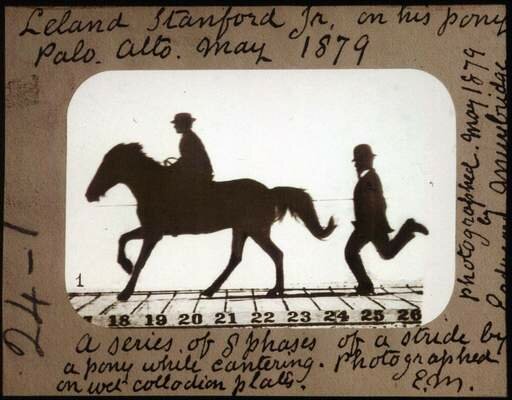 Leland Stanford Jr. on his pony
Palo. Alto. May 1879
photographed. May 1879
by
Muybridge
24-1
1
18 19 20 21 22 23 24 25 26
A series of 8 phases of a stride by
a pony while cantering. Photographed
on wet collodion plate.
E.M.